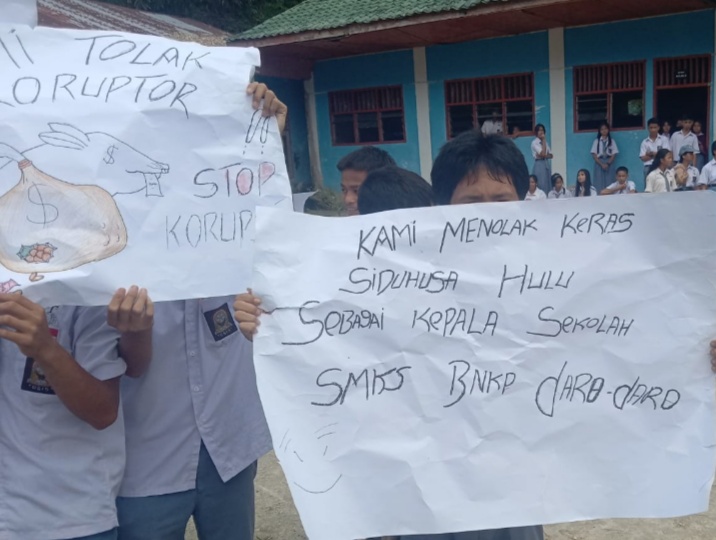 TOLAK
KORUPTOR
STOP
KORUP
KAMI MENOLAK KERAS
SIDUHUSA HULU
SEBAGAI KEPALA SEKOLAH
SMKS BNKP DARO-DARO